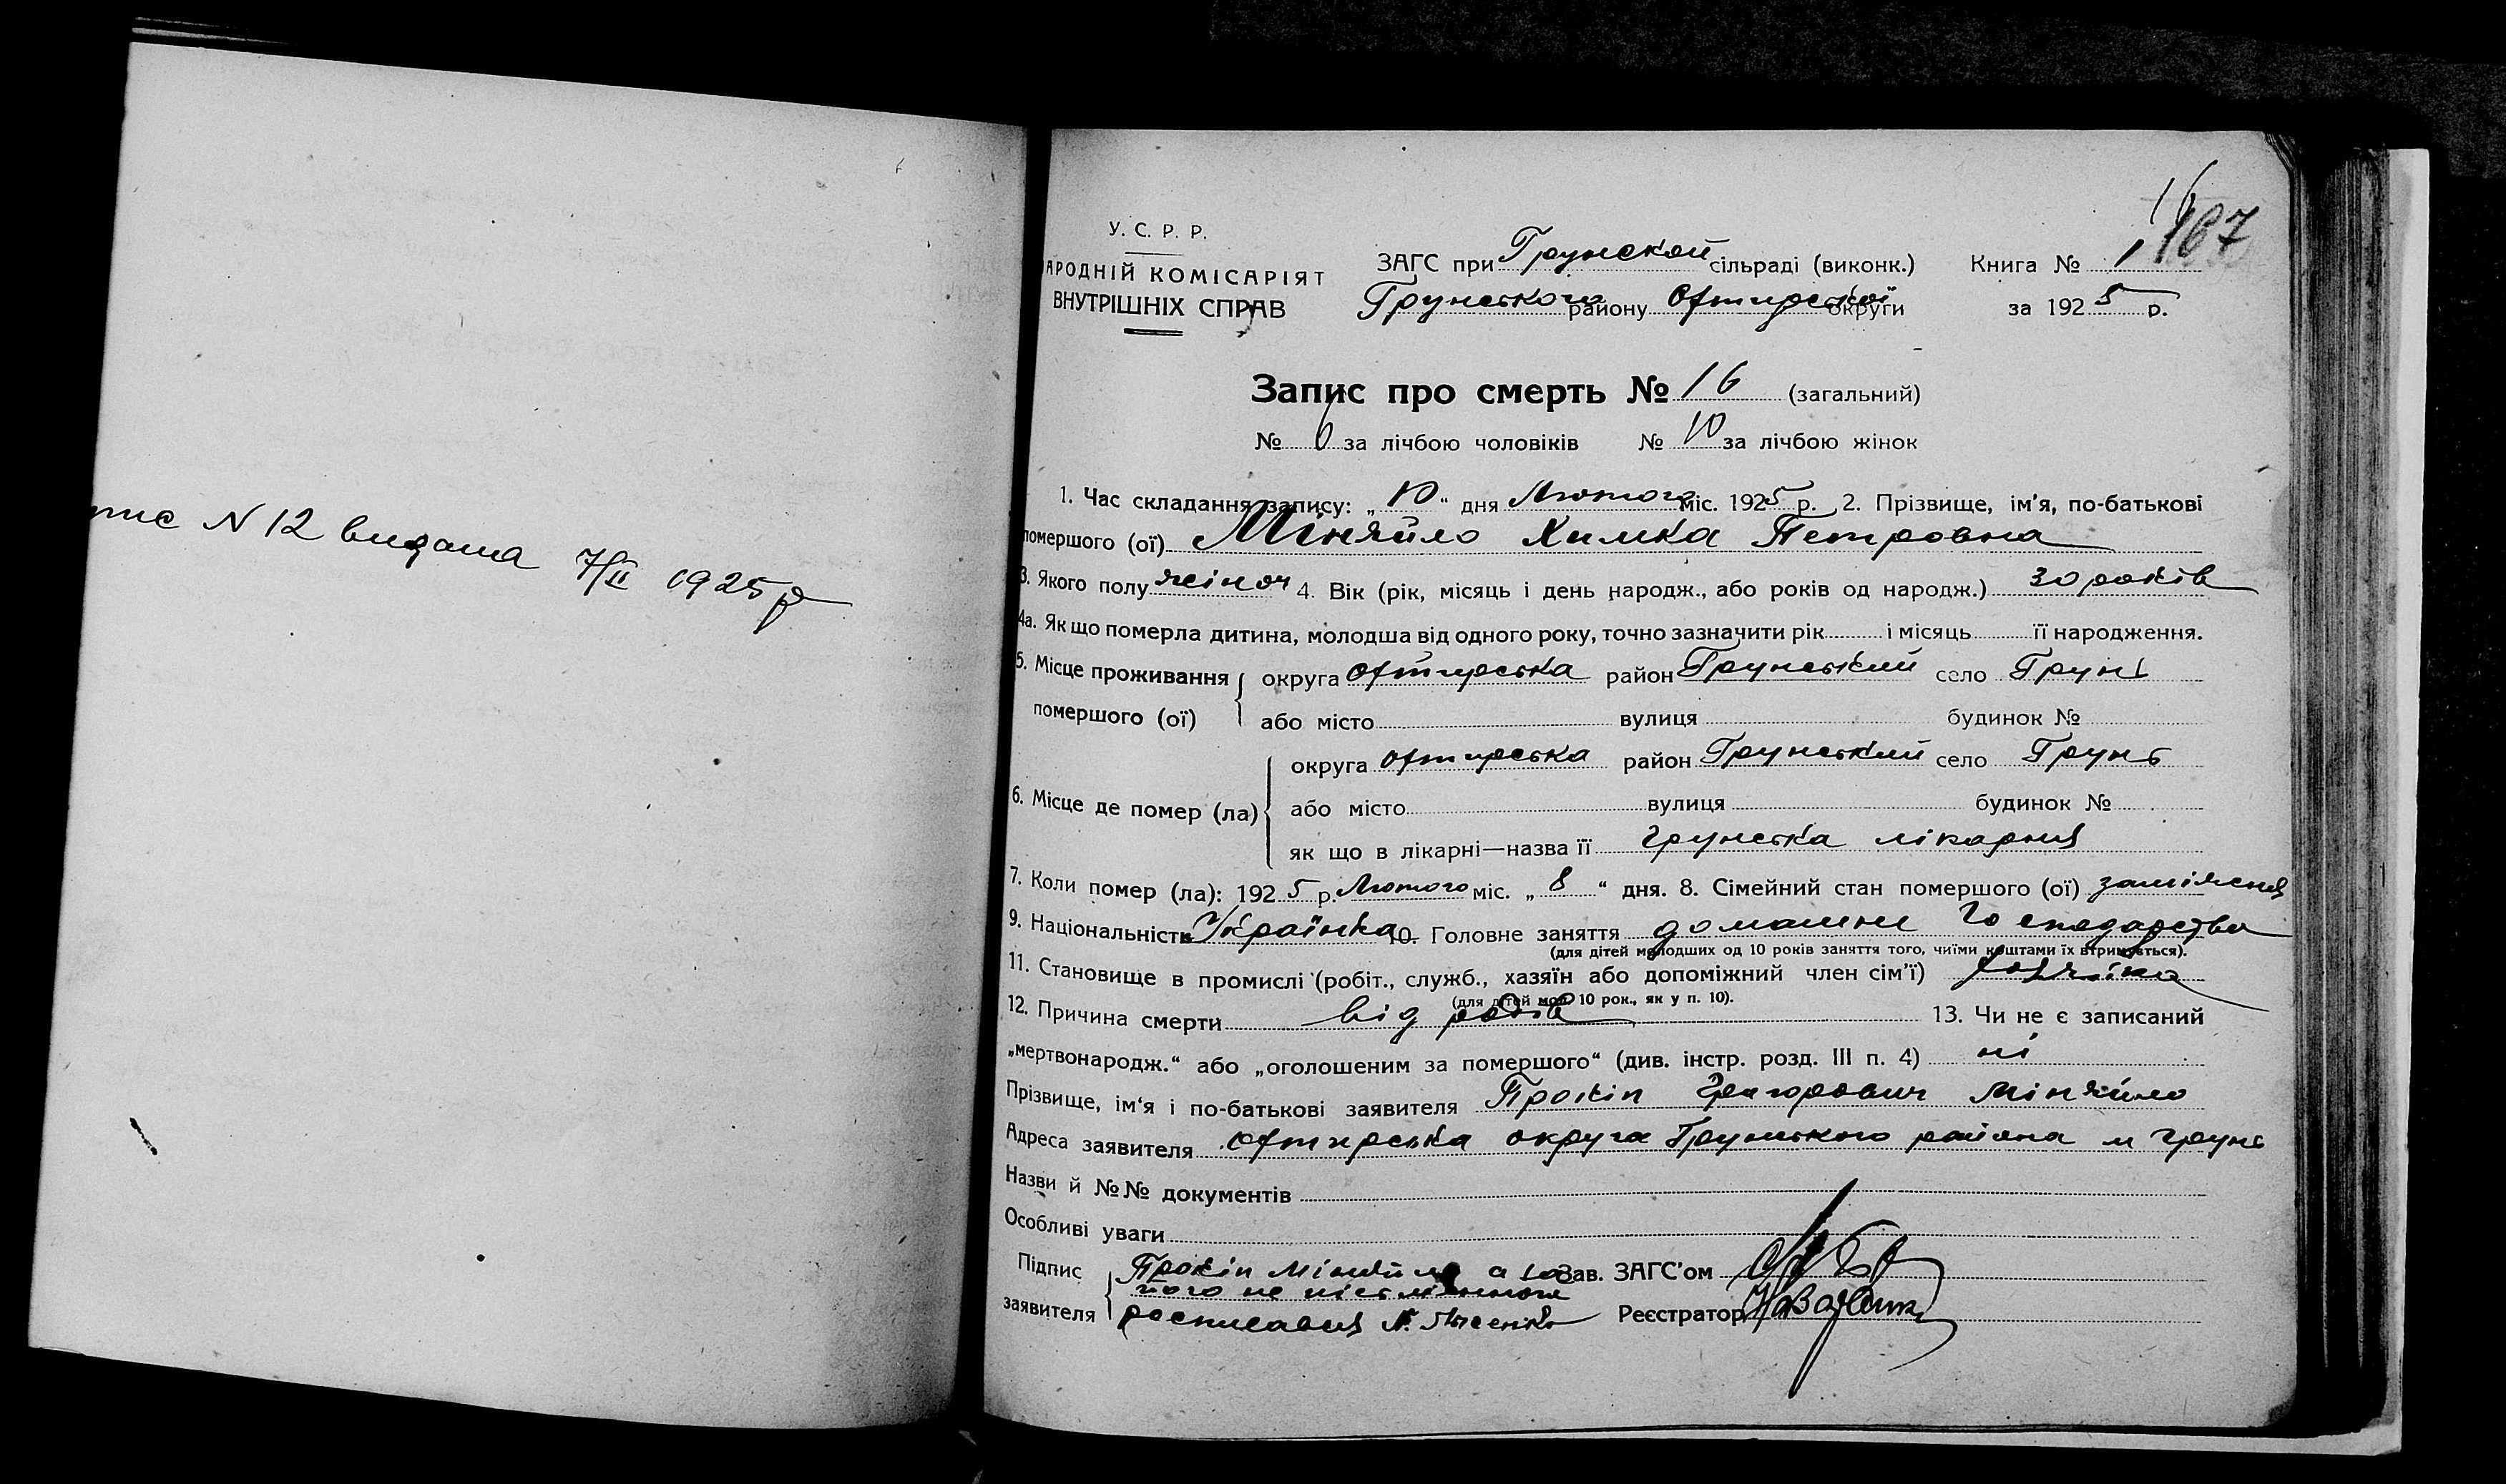 пис N 12 видана 7/II 1925 р
16
167
У. С. Р. Р.
АРОДНІЙ КОМІСАРІЯТ
ВНУТРІШНІХ СПРАВ
ЗАГС при Грунской сільраді (виконк.) Книга № 1
Грунського району Охтирської округи за 1925 р.
Запис про смерть № 16 (загальний)
№ за лічбою чоловіків № 10 за лічбою жінок
1. Час складання запису: „10“ дня Лютого міс. 1925 р. 2. Прізвище, ім'я, по-батькові
помершого (ої) Міняйло Химка Петровна
3. Якого полу жіноч 4. Вік (рік, місяць і день народж., або років од народж.) 30 років
4а. Як що померла дитина, молодша від одного року, точно зазначити рік і місяць її народження.
5. Місце проживання округа Охтирська район Грунський село Грунь
помершого (ої) або місто вулиця будинок №
округа Охтирська район Грунський село Грунь
6. Місце де помер (ла) або місто вулиця будинок №
як що в лікарні—назва її Грунська лікарня
7. Коли помер (ла): 1925 р. Лютого міс. „8“ дня. 8. Сімейний стан помершого (ої) заміжня
9. Національність Українка 10. Головне заняття домашне господарство
(для дітей молодших од 10 років заняття того, чиїми коштами їх втримується).
11. Становище в промислі (робіт., служб., хазяїн або допоміжний член сім'ї)
(для дітей мол. 10 рок., як у п. 10).
12. Причина смерти від родів 13. Чи не є записаний
„мертвонародж.“ або „оголошеним за помершого“ (див. інстр. розд. III п. 4) ні
Прізвище, ім'я і по-батькові заявителя Прокіп Григорович Міняйло
Адреса заявителя Охтирська округа Грунського района м Грунь
Назви й №№ документів
Особливі уваги
Підпис Прокіп Міняйло а за Зав. ЗАГС'ом
його не письменного
заявителя росписався Лысенко Реєстратор